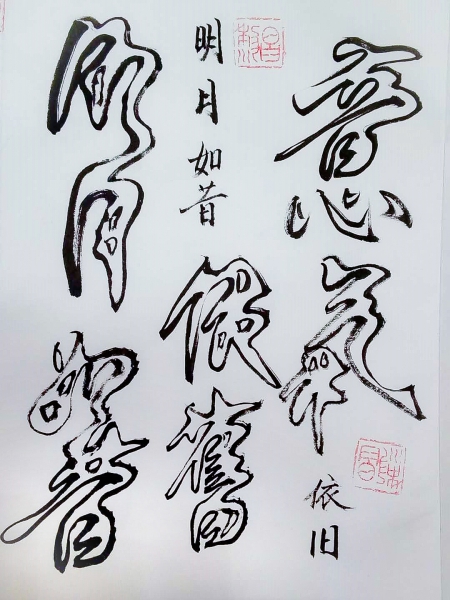 意氣
依旧
明月如昔
依舊
明月如昔